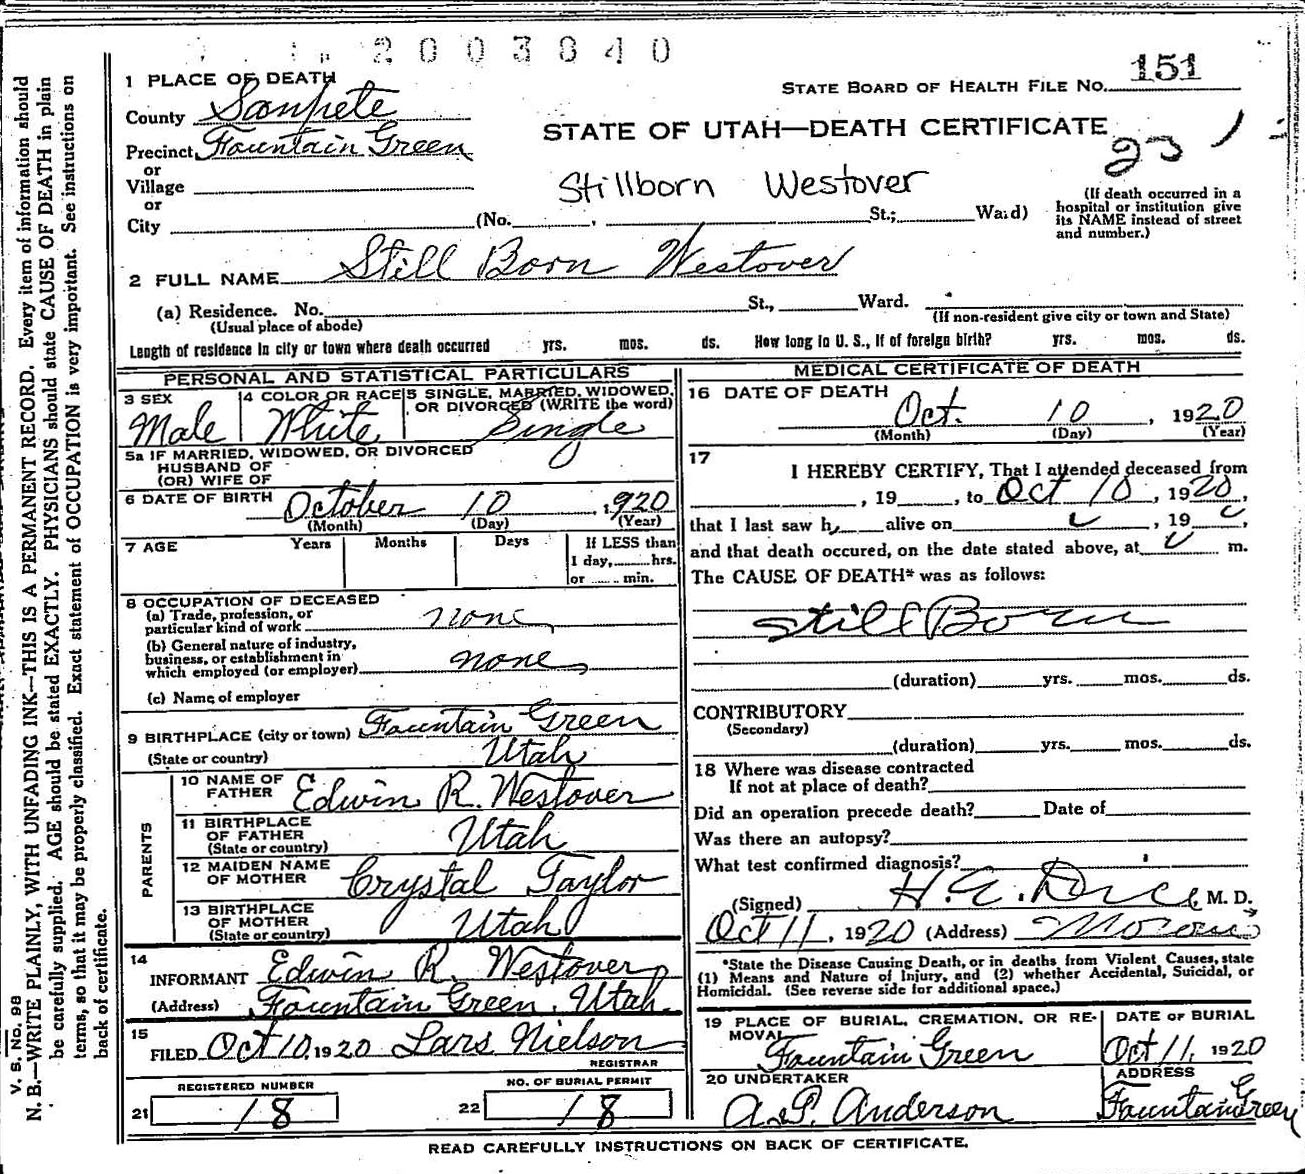 2003840
1 PLACE OF DEATH
STATE BOARD OF HEALTH FILE No. 151
County Sanpete
STATE OF UTAH—DEATH CERTIFICATE
Precinct Fountain Green
23
or
Village
Stillborn Westover
or
City (No. , St.; Ward)
(If death occurred in a
hospital or institution give
its NAME instead of street
and number.)
2 FULL NAME Still Born Westover
(a) Residence. No. St., Ward.
(Usual place of abode)
(If non-resident give city or town and State)
Length of residence in city or town where death occurred yrs. mos. ds. How long in U. S., if of foreign birth? yrs. mos. ds.
PERSONAL AND STATISTICAL PARTICULARS
3 SEX
Male
4 COLOR OR RACE
White
5 SINGLE, MARRIED, WIDOWED,
OR DIVORCED (WRITE the word)
Single
5a IF MARRIED, WIDOWED, OR DIVORCED
HUSBAND OF
(OR) WIFE OF
6 DATE OF BIRTH October 10, 1920
(Month) (Day) (Year)
7 AGE Years Months Days If LESS than
1 day, hrs.
or min.
8 OCCUPATION OF DECEASED
(a) Trade, profession, or
particular kind of work none
(b) General nature of industry,
business, or establishment in
which employed (or employer) none
(c) Name of employer
9 BIRTHPLACE (city or town) Fountain Green
(State or country) Utah
PARENTS
10 NAME OF
FATHER Edwin R. Westover
11 BIRTHPLACE
OF FATHER
(State or country) Utah
12 MAIDEN NAME
OF MOTHER Crystal Taylor
13 BIRTHPLACE
OF MOTHER
(State or country) Utah
14
INFORMANT Edwin R. Westover
(Address) Fountain Green, Utah
15
FILED Oct 10, 1920 Lars Nielson
REGISTRAR
REGISTERED NUMBER
21 18
NO. OF BURIAL PERMIT
22 18
MEDICAL CERTIFICATE OF DEATH
16 DATE OF DEATH
Oct. 10, 1920
(Month) (Day) (Year)
17
I HEREBY CERTIFY, That I attended deceased from
, 19 , to Oct 10, 1920,
that I last saw h alive on , 19 ,
and that death occured, on the date stated above, at m.
The CAUSE OF DEATH* was as follows:
Still Born
(duration) yrs. mos. ds.
CONTRIBUTORY
(Secondary)
(duration) yrs. mos. ds.
18 Where was disease contracted
If not at place of death?
Did an operation precede death? Date of
Was there an autopsy?
What test confirmed diagnosis?
(Signed) H. E. M. D.
Oct 11, 1920 (Address) Moroni
*State the Disease Causing Death, or in deaths from Violent Causes, state
(1) Means and Nature of Injury, and (2) whether Accidental, Suicidal, or
Homicidal. (See reverse side for additional space.)
19 PLACE OF BURIAL, CREMATION, OR RE-
MOVAL
Fountain Green
DATE OF BURIAL
Oct 11, 1920
20 UNDERTAKER
A. P. Anderson
ADDRESS
Fountain Green
READ CAREFULLY INSTRUCTIONS ON BACK OF CERTIFICATE.
V. S. No. 98
N. B.—WRITE PLAINLY, WITH UNFADING INK—THIS IS A PERMANENT RECORD. Every item of information should
be carefully supplied. AGE should be stated EXACTLY. PHYSICIANS should state CAUSE OF DEATH in plain
terms, so that it may be properly classified. Exact statement of OCCUPATION is very important. See instructions on
back of certificate.